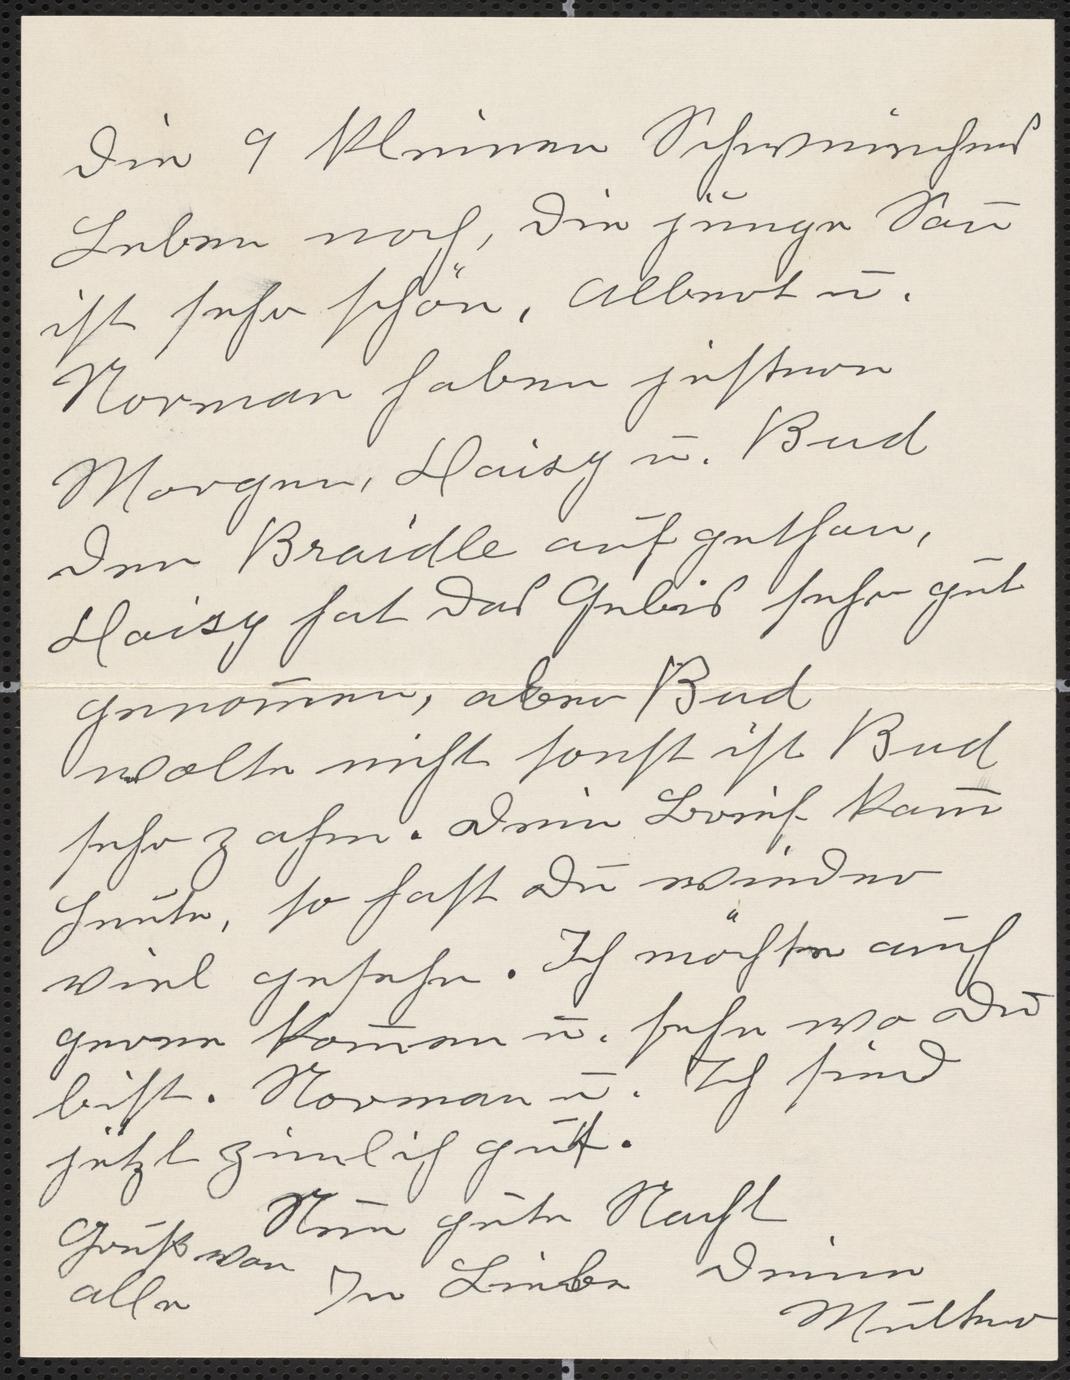 Die 9 kleinen Schweinches
Leben noch, Die junge Sau
ist sehr schön, Albert u.
Norman haben jestern
Morgen, Daisy u. Bud
den Braidle aufgethan,
Daisy hat das Gebis sehr gut
genom̄en, aber Bud
wolte nicht sonst ist Bud
sehr zahm. Dein Brief kam̄
heute, so hast Du wieder
viel gesehe. Ich möchte auch
gerne kom̄en u. sehe wo Du
bist. Norman u. Ich sind
jetzt zimlich gut.
Nun gute Nacht
Gruß von
alle In Liebe Deine
Mutter